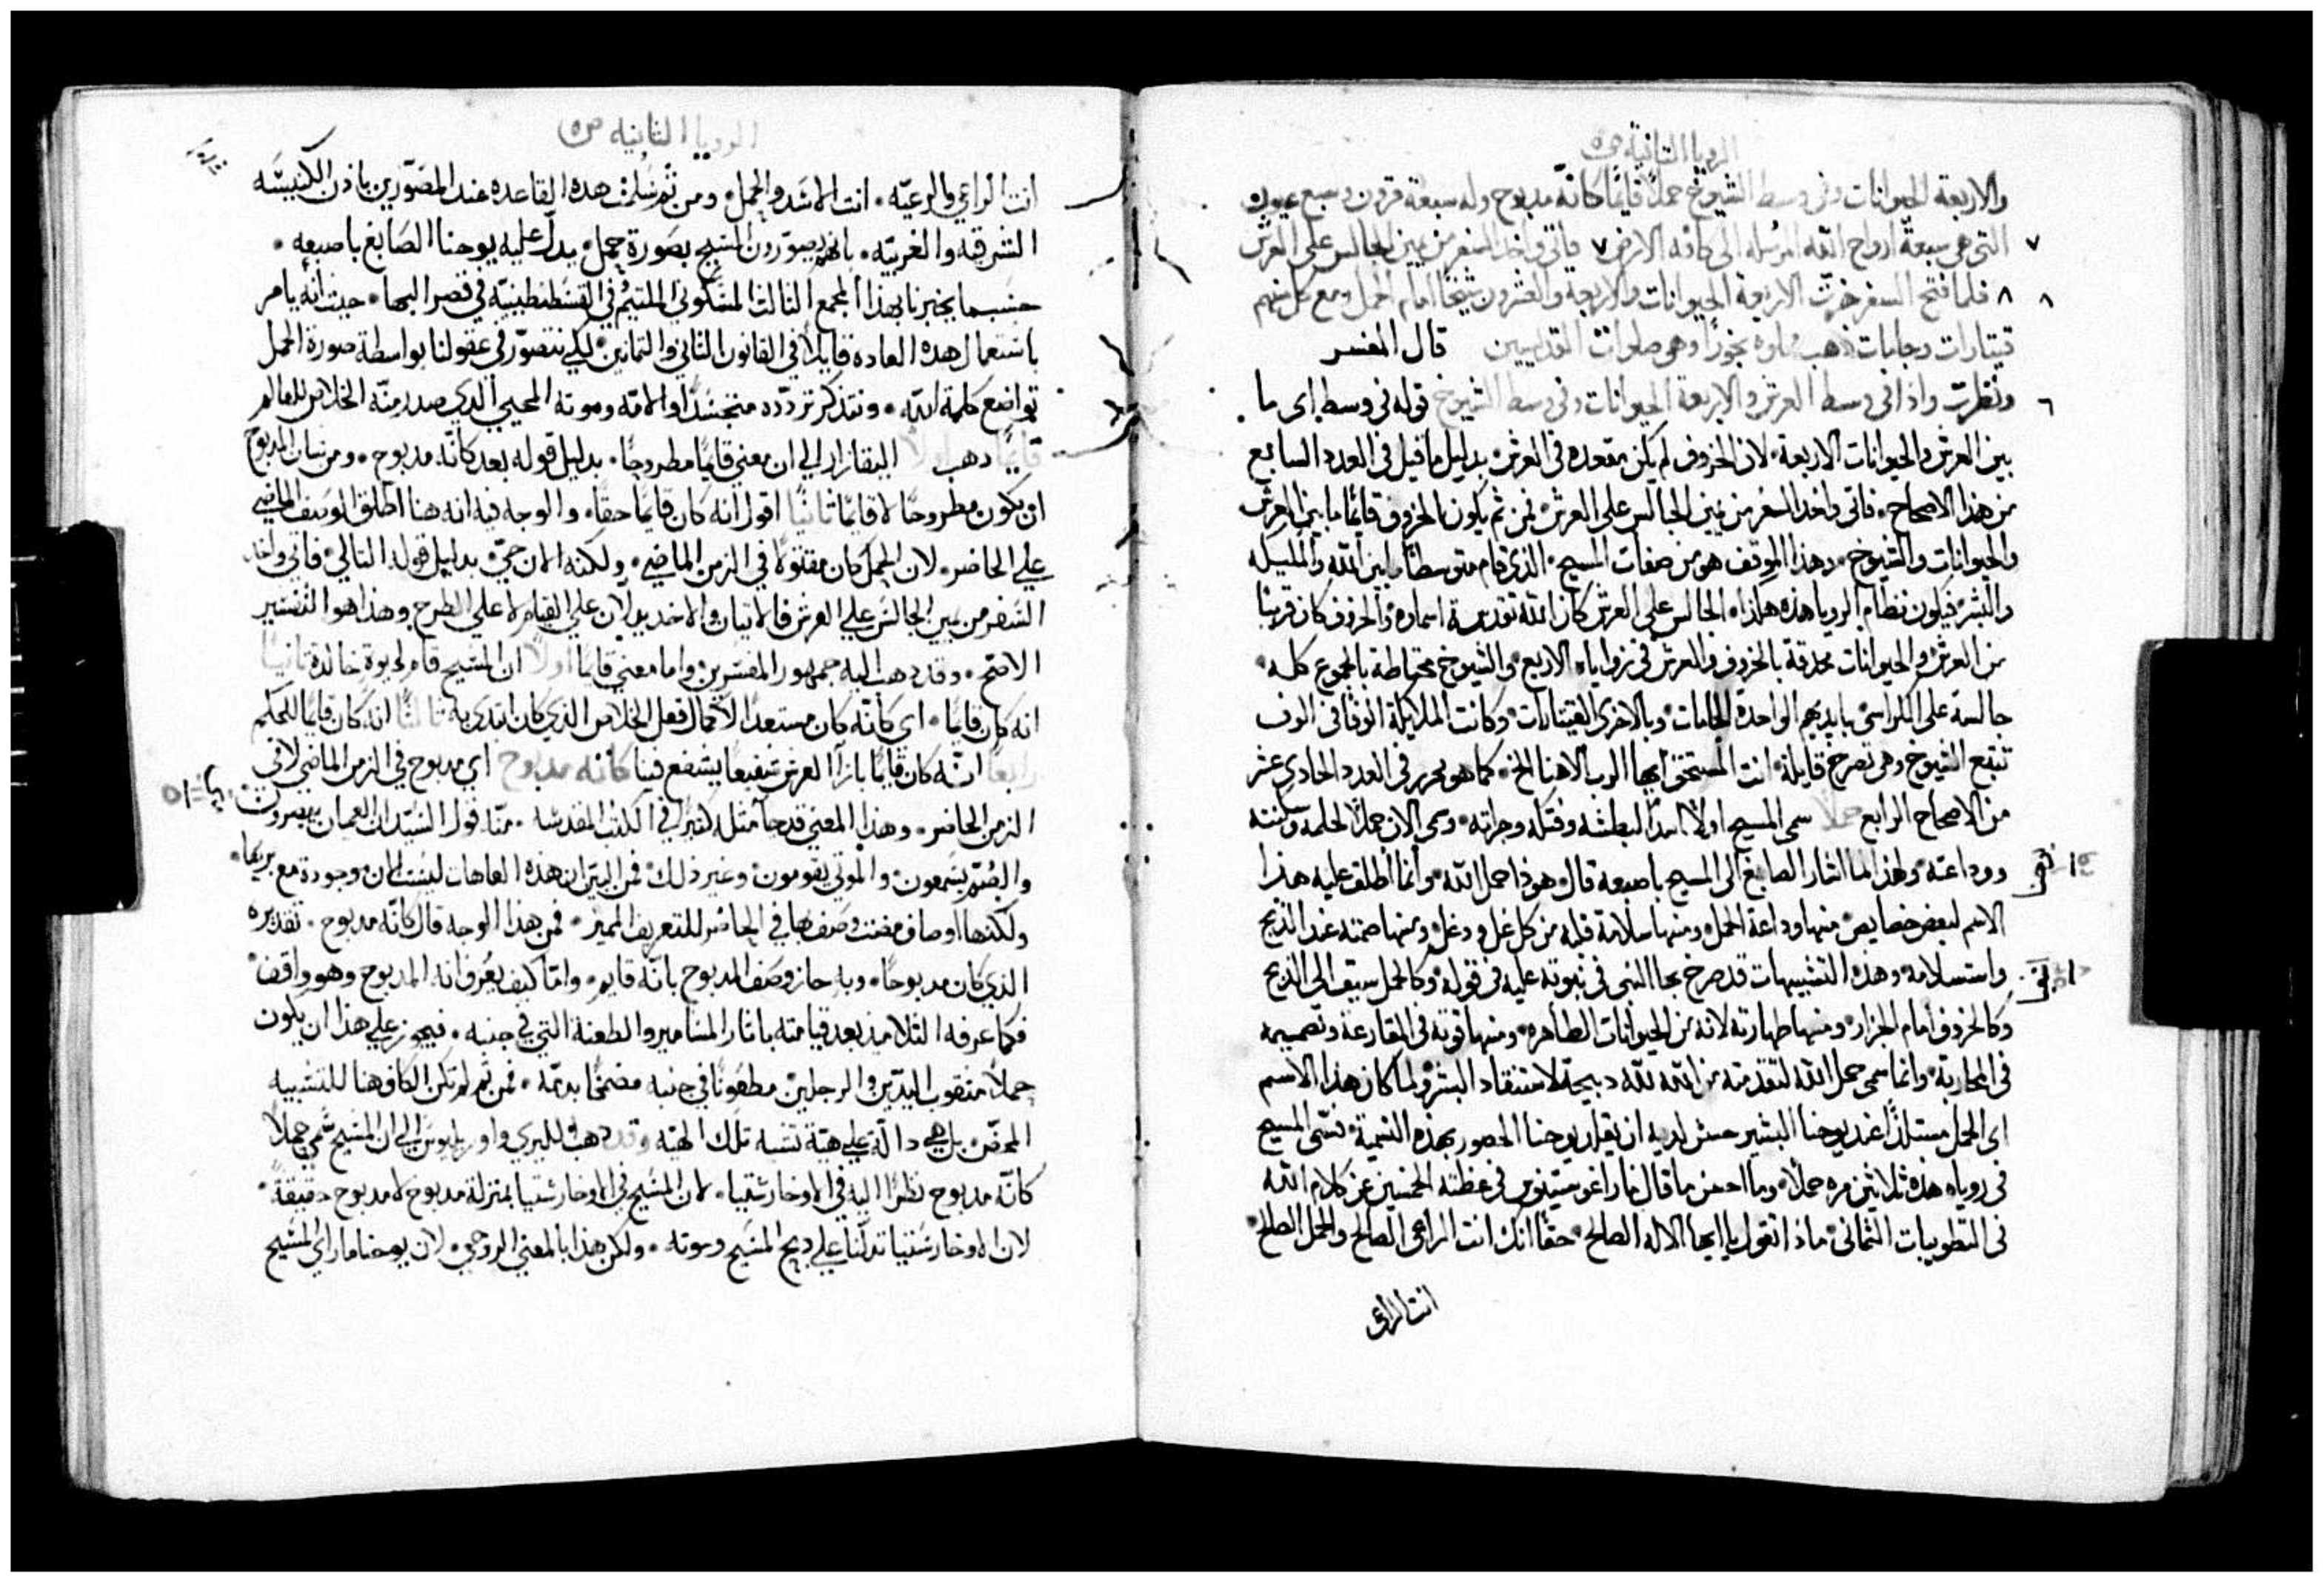 الرويا الثانية ص٥
والاربعة الحيوانات وفي وسط الشيوخ حملاً قايمًا كانّه مدبوح وله سبعة قرون وسبع عيون
٧ التي هي سبعة ارواح الله المرسله الى كافة الارض ٧ فاتى واخد السفر من يمين الجالس على العرش
٨ ٨ فلما فتح السفر خرّت الاربعة الحيوانات والاربعة والعشرون شيخًا امام الحمل ومع كل منهم
قيتارات وجامات دهب مملوه بخورًا وهي صلوات القديسين قال المفسر
٦ ونظرت واذا في وسط العرش والاربعة الحيوانات وفي وسط الشيوخ قوله في وسط اى ما
بين العرش والحيوانات الاربعة لان الخروف لم يكن مقعده في العرش بدليل ما قيل في العدد السابع
من هذا الاصحاح فاتى واخد السفر من يمين الجالس على العرش فمن ثم يكون الخروف قائمًا ما بين العرش
والحيوانات والشيوخ وهذا الموقف هو من صفات المسيح الذي قام متوسطًا ما بين الله والمليكه
والبشر فيكون نظام الرويا هذه هكذا الجالس على العرش كان الله تقدست اسماوه والخروف كان قريبًا
من العرش والحيوانات محدقة بالخروف والعرش في زواياه الاربع والشيوخ محتاطة بالمجموع كله
جالسة على الكراسي بايديهم الواحدة الجامات وبالاخرى القيتارات وكانت الملايكة الوفًا في الوف
تتبع الشيوخ وهي تصرخ قايلة انت المستحق ايها الرب الاهنا الخ كما هو محرر في العدد الحادي عشر
من الاصحاح الرابع حملاً سمي المسيح اولاً اسدًا لبطشه وفتكه وجراته وسمي الان حملاً لحلمه وسكينته
ووداعته ولهذا لما اشار الصابغ الى المسيح باصبعه قال هوذا حمل الله وانما اطلق عليه هذا
الاسم لبعض خصايص منها وداعة الحمل ومنها سلامة قلبه من كل غل ودغل ومنها صمته عند الذبح
واستسلامه وهذه التشبيهات قد صرح بها النبي في نبوته عليه في قوله وكالحمل سيق الى الذبح
وكالخروف امام الجزار ومنها طهارته لانه من الحيوانات الطاهره ومنها قوته في المقارعة وتصميمه
في المحاربة وانما سمي حمل الله لتقدمته من الله لله دبيحة لاستنقاد البشر ولما كان هذا الاسم
اي الحمل مستلذًا عند يوحنا البشير حسن لديه ان يقلد يوحنا الحصور بهذه التسمية فسمى المسيح
في روياه هذه ثلاثين مره حملاً وما احسن ما قال مار اغوستينوس في عظته الخمسين عن كلام الله
في التطويبات الثماني ماذا نقول يا ايها الاله الصالح حقًا انك انت الراعي الصالح والحمل الصالح
انت الراعي
الرويا الثانيه ص٥
انت الراعي والرعيّه انت الاسد والحمل ومن ثم سلمت هده القاعده عند المصوّرين باذن الكنيسه
الشرقيه والغربيّه بانهم يصوّرون المسيح بصورة حمل يدل عليه يوحنا الصابغ باصبعه
حسبما يخبرنا بهذا المجمع الثالث المسكوني الملتيم في القسطنطينيّه في قصر البها حيث انه يامر
باستعمال هده العاده قايلاً في القانون الثاني والثمانين لكي نتصوّر في عقولنا بواسطة صورة الحمل
تواضع كلمة الله ونتذكر تردّده متجسّدًا والامّه وموته المحيي الذي صدر منّه الخلاص للعالم
قايمًا دهب اولاً البقازار الي ان معني قايمًا مطروحًا بدليل قوله بعد كانّه مدبوح ومن شان المدبوح
ان يكون مطروحًا لا قايمًا ثانيًا اقول انه كان قايمًا حقًا والوجه فيه انه هنا اطلق الوصف الماضي
علي الحاضر لان الحمل كان مقتولاً في الزمن الماضي ولكنه الان حيّ بدليل قوله التالي فاتي واخد
السفر من يمين الجالس علي العرش فالاتيان والاخد يدلان علي القيام لا علي الطرح وهذا هو التفسير
الاصح وقد دهب اليه جمهور المفسّرين واما معني قايمًا اولاً ان المسيح قام لحيوة خالدة ثانيًا
انه كان قايمًا اي كانّه كان مستعدًا لاكمال فعل الخلاص الذي كان ابتدي به ثالثًا انه كان قايمًا للحكم
رابعًا انّه كان قايمًا بازآ العرش شفيعًا يشفع فينا كانه مدبوح اي مدبوح في الزمن الماضي لا في
الزمن الحاضر وهذا المعني قد جآ مثله كثيرًا في الكتب المقدسه منّا قول السيّد ان العميان يبصرون
والصُمّ يسمعون والموتي يقومون وغير ذلك فمن البيّن ان هذه العاهات ليست الان موجودة مع بريها
ولكنها اوصاف مضت وصف بها في الحاضر للتعريف المميز فمن هذا الوجه قال كانّه مدبوح تقديره
الذي كان مدبوحًا وبه جاز وصف المدبوح بانّه قايم وامّا كيف يُعرف انه المدبوح وهو واقف
فكما عرفه التلاميذ بعد قيامته باثار المسامير والطعنة التي في جنبه فيجوز علي هذا ان يكون
حملاً مثقوب اليدّين والرجلين مطعونًا في جنبه مضمخًا بدمّه فمن ثم لم تكن الكاف هنا للتشبيه
المحض بل هي دالّة علي هيّة تشبه تلك الهيّة وقد دهب لليري واوريليوس الي ان المسيح سُمي حملاً
كانّه مدبوح نظرًا اليه في الاوخارستيا لان المسيح في الاوخارستيا بمنزلة مدبوح لا مدبوح حقيقةً
لان الاوخارستيا تدلّنا علي دبح المسيح وموته ولكن هذا بالمعني الروحي لان يوحنا ما راي المسيح